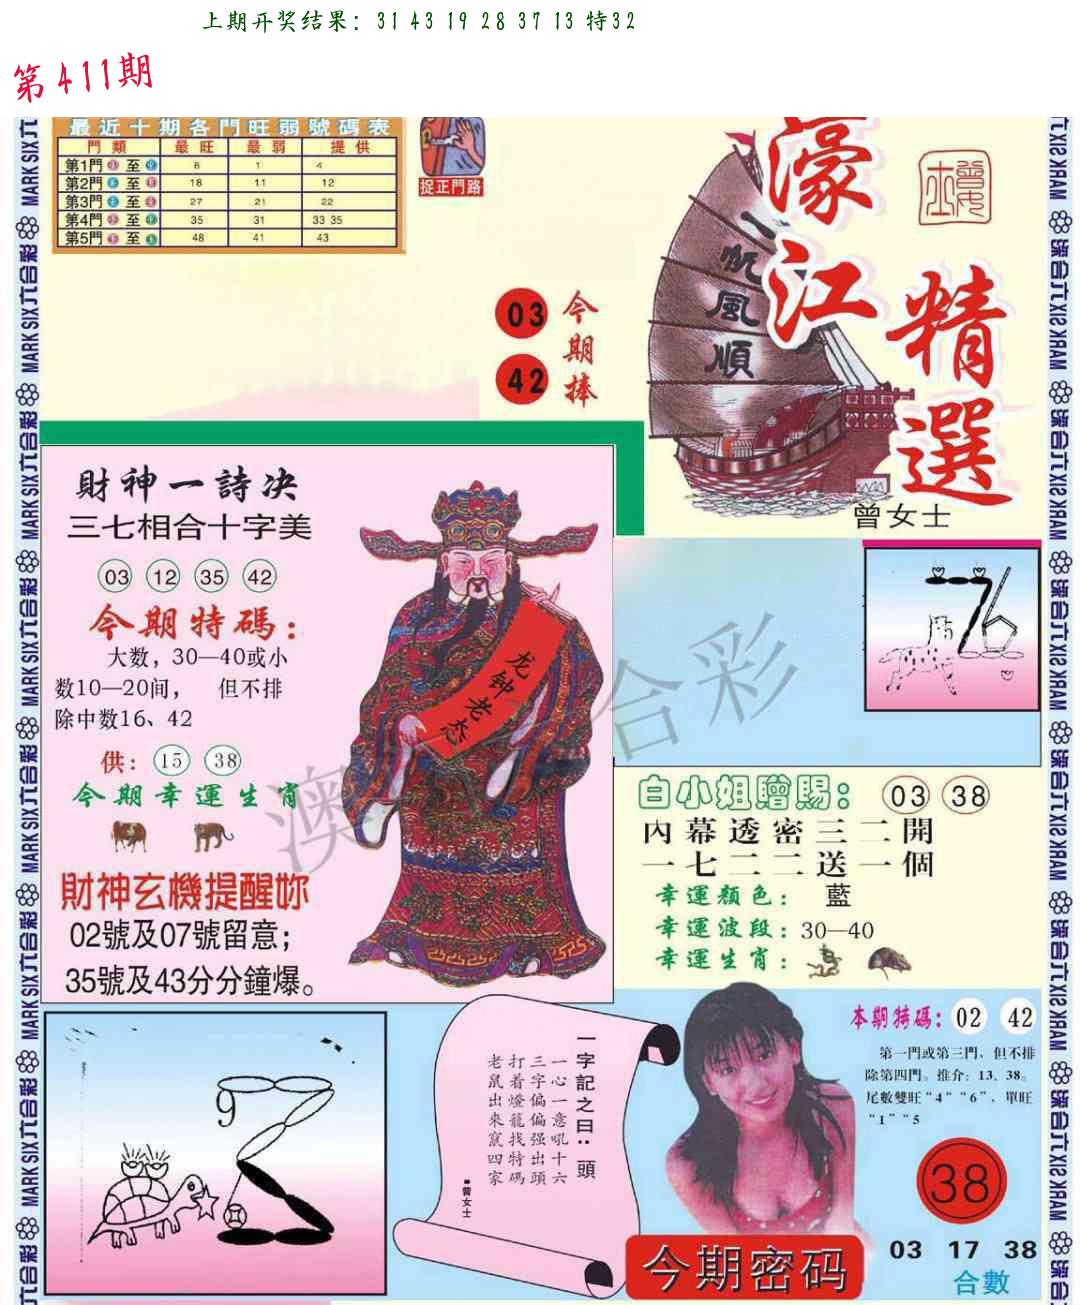 上期开奖结果：31 43 19 28 37 13 特32
第411期
最近十期各門旺弱號碼表
門類 最旺 最弱 提供
第1門 至 8 1 4
第2門 至 18 11 12
第3門 至 27 21 22
第4門 至 35 31 33 35
第5門 至 48 41 43
捉正門路
03
42
今期捧
一帆風順
濠江
精選
曾女士
財神一詩决
三七相合十字美
03 12 35 42
今期特碼：
大数，30—40或小
数10—20间， 但不排
除中数16、42
供： 15 38
今期幸運生肖
財神玄機提醒妳
02號及07號留意；
35號及43分分鐘爆。
龙钟老态
76
馬
白小姐贈賜： 03 38
內幕透密三二開
一七二二送一個
幸運顏色： 藍
幸運波段：30—40
幸運生肖：
9
一字記之曰：頭
一心一意吼十六
三字偏偏强出頭
打着燈籠找特碼
老鼠出來竄四家
■曾女士
本期特碼： 02 42
第一門或第三門、但不排
除第四門。推介：13、38。
尾數雙旺“4”“6”，單旺
“1”“5
38
今期密码
03 17 38
合數
MARK SIX六合彩
澳 合彩